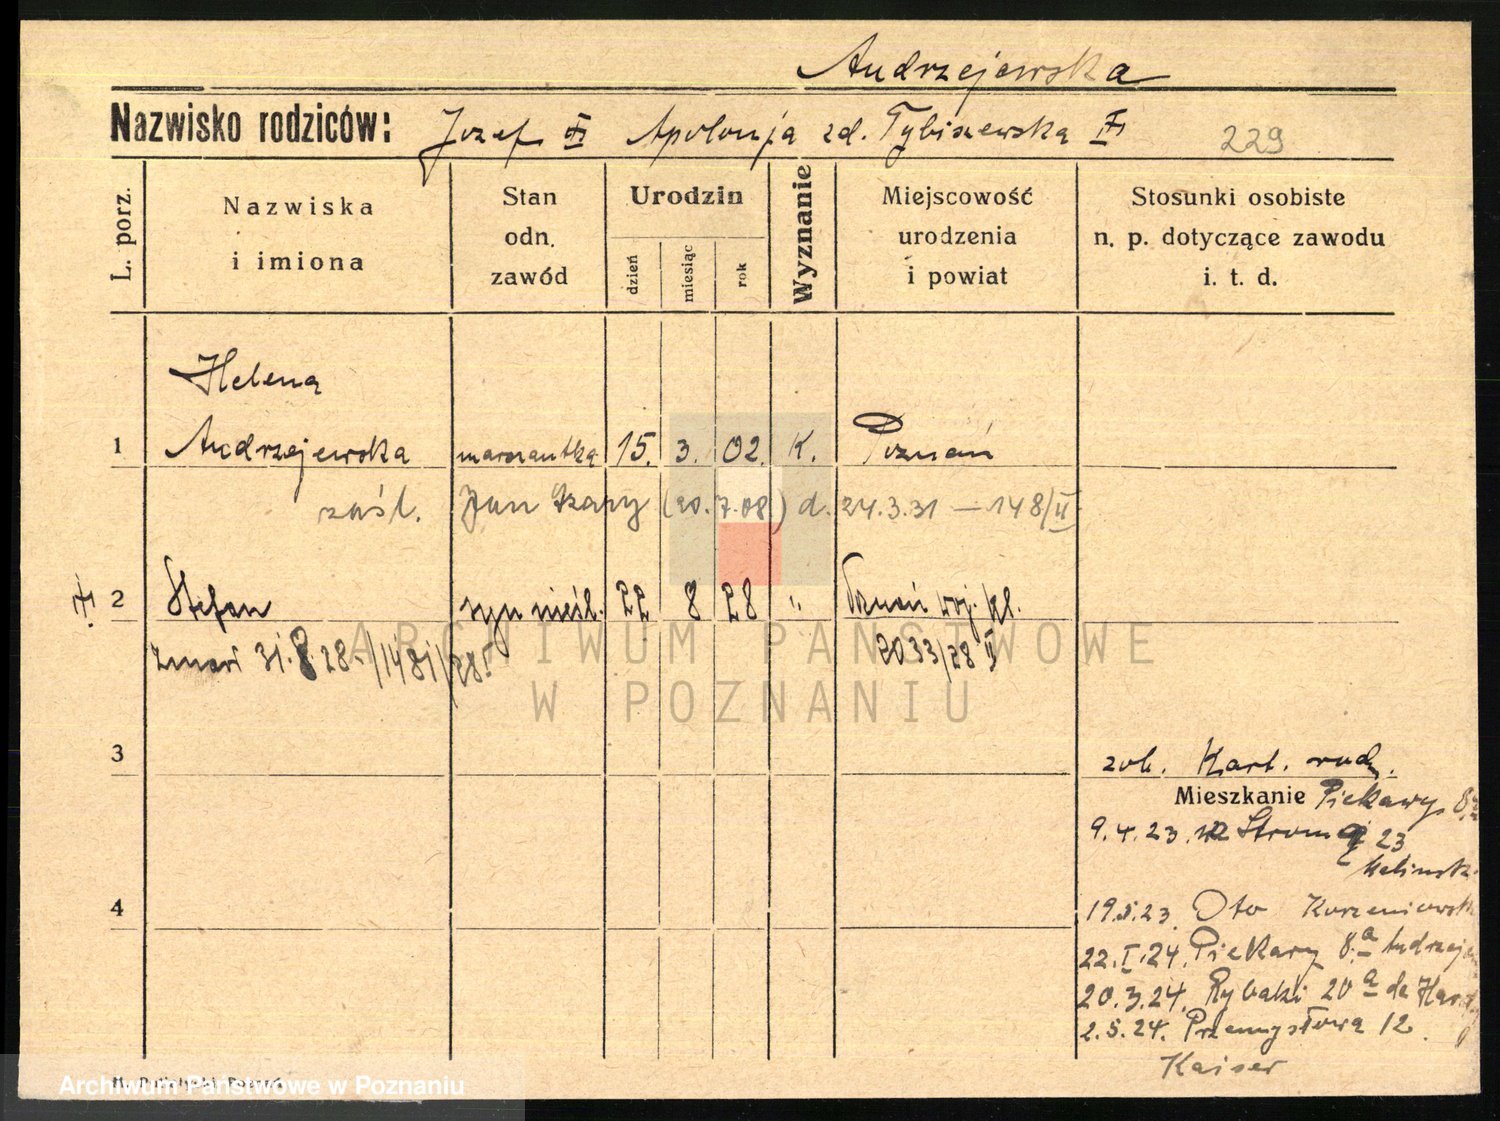 Andrzejewska
Nazwisko rodziców: Jozef Apolonja zd. Tybiszewska 229
L. porz.
Nazwiska i imiona
Stan odn. zawód
Urodzin
dzień miesiąc rok
Wyznanie
Miejscowość urodzenia i powiat
Stosunki osobiste n. p. dotyczące zawodu i. t. d.
Helena
1 Andrzejewska 15. 3. 02. K. Poznań
zaśl. Jan (20.7.08) d. 24.3.31 — 148/II
2 Stefan syn nieśl. 22 8 28 " Poznań woj.
zmarł 31.8.28 - /1481/28 2033/28 II
ARCHIWUM PAŃSTWOWE
W POZNANIU
3
zob. Kart. rodz.
Mieszkanie Piekary 8
9.4.23. Stroma 23
19.5.23. Oto
4
22.I.24. Piekary 8.a
20.3.24. Rybaki 20 a de
2.5.24. Przemysłowa 12.
Kaiser
Archiwum Państwowe w Poznaniu